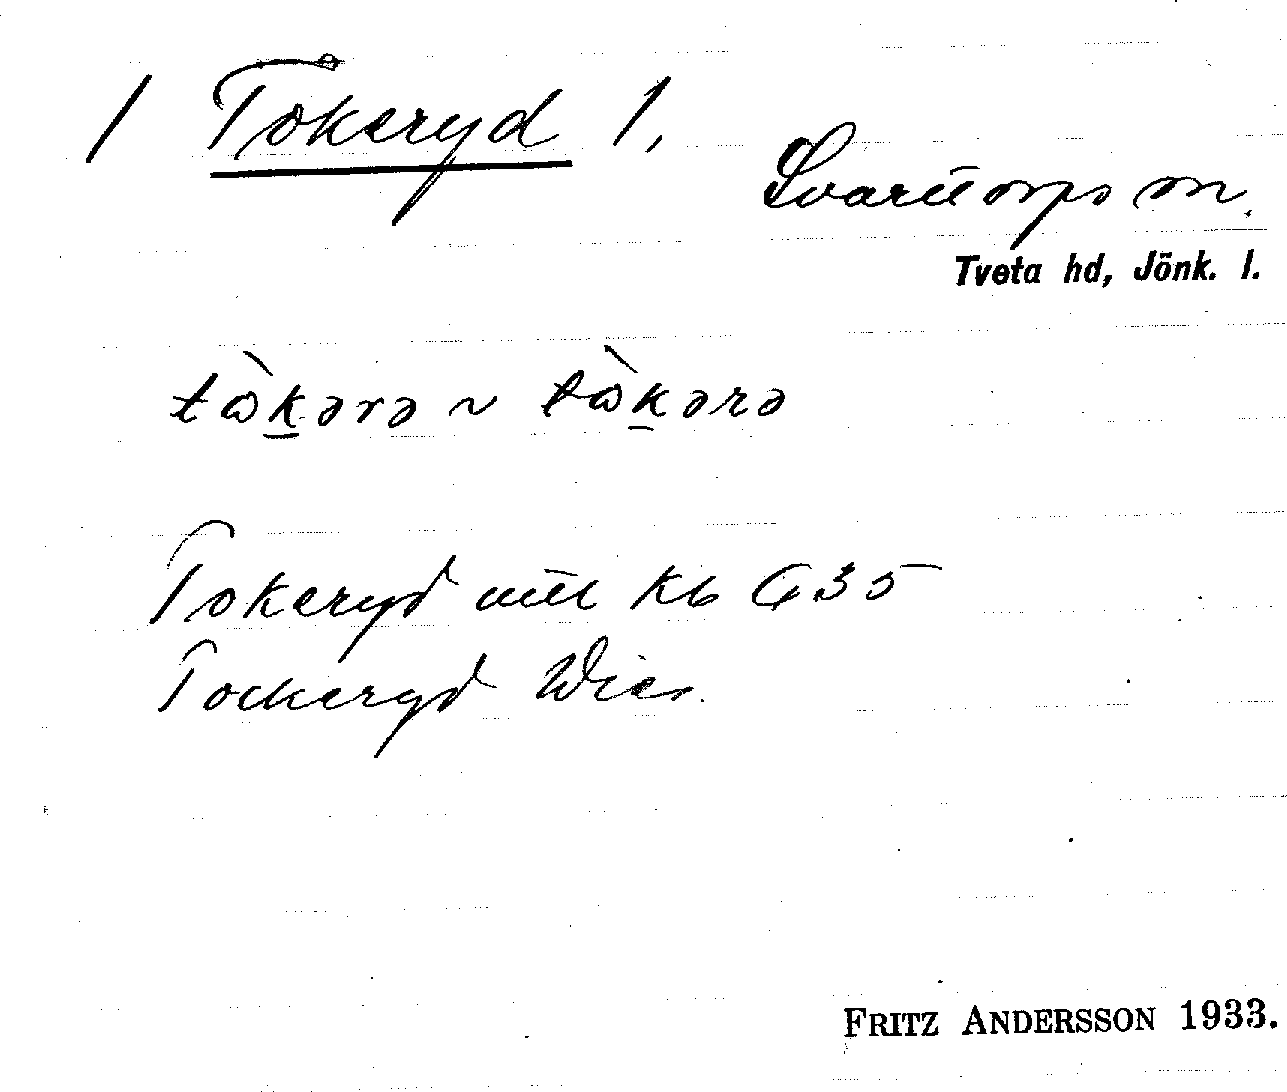 / Tokeryd 1.
Svarttorps sn.
Tveta hd, Jönk. l.
tὼk̲ərə ~ tὼk̲ərə
Tokeryd mtl Kb G35
Tockeryd Wier.
FRITZ ANDERSSON 1933.